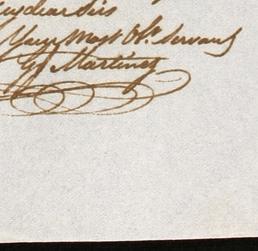 my dear Sir
Your Most Obt. Servant
Martinez